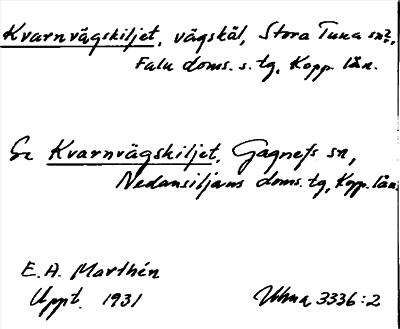 Kvarnvägskiljet, vägskäl, Stora Tuna sn?,
Falu doms. s. tg, Kopp. län.
Se Kvarnvägskiljet, Gagnefs sn,
Nedansiljans doms. tg, Kopp. län.
E. A. Marthén
Uppt. 1931
Uhma 3336:2